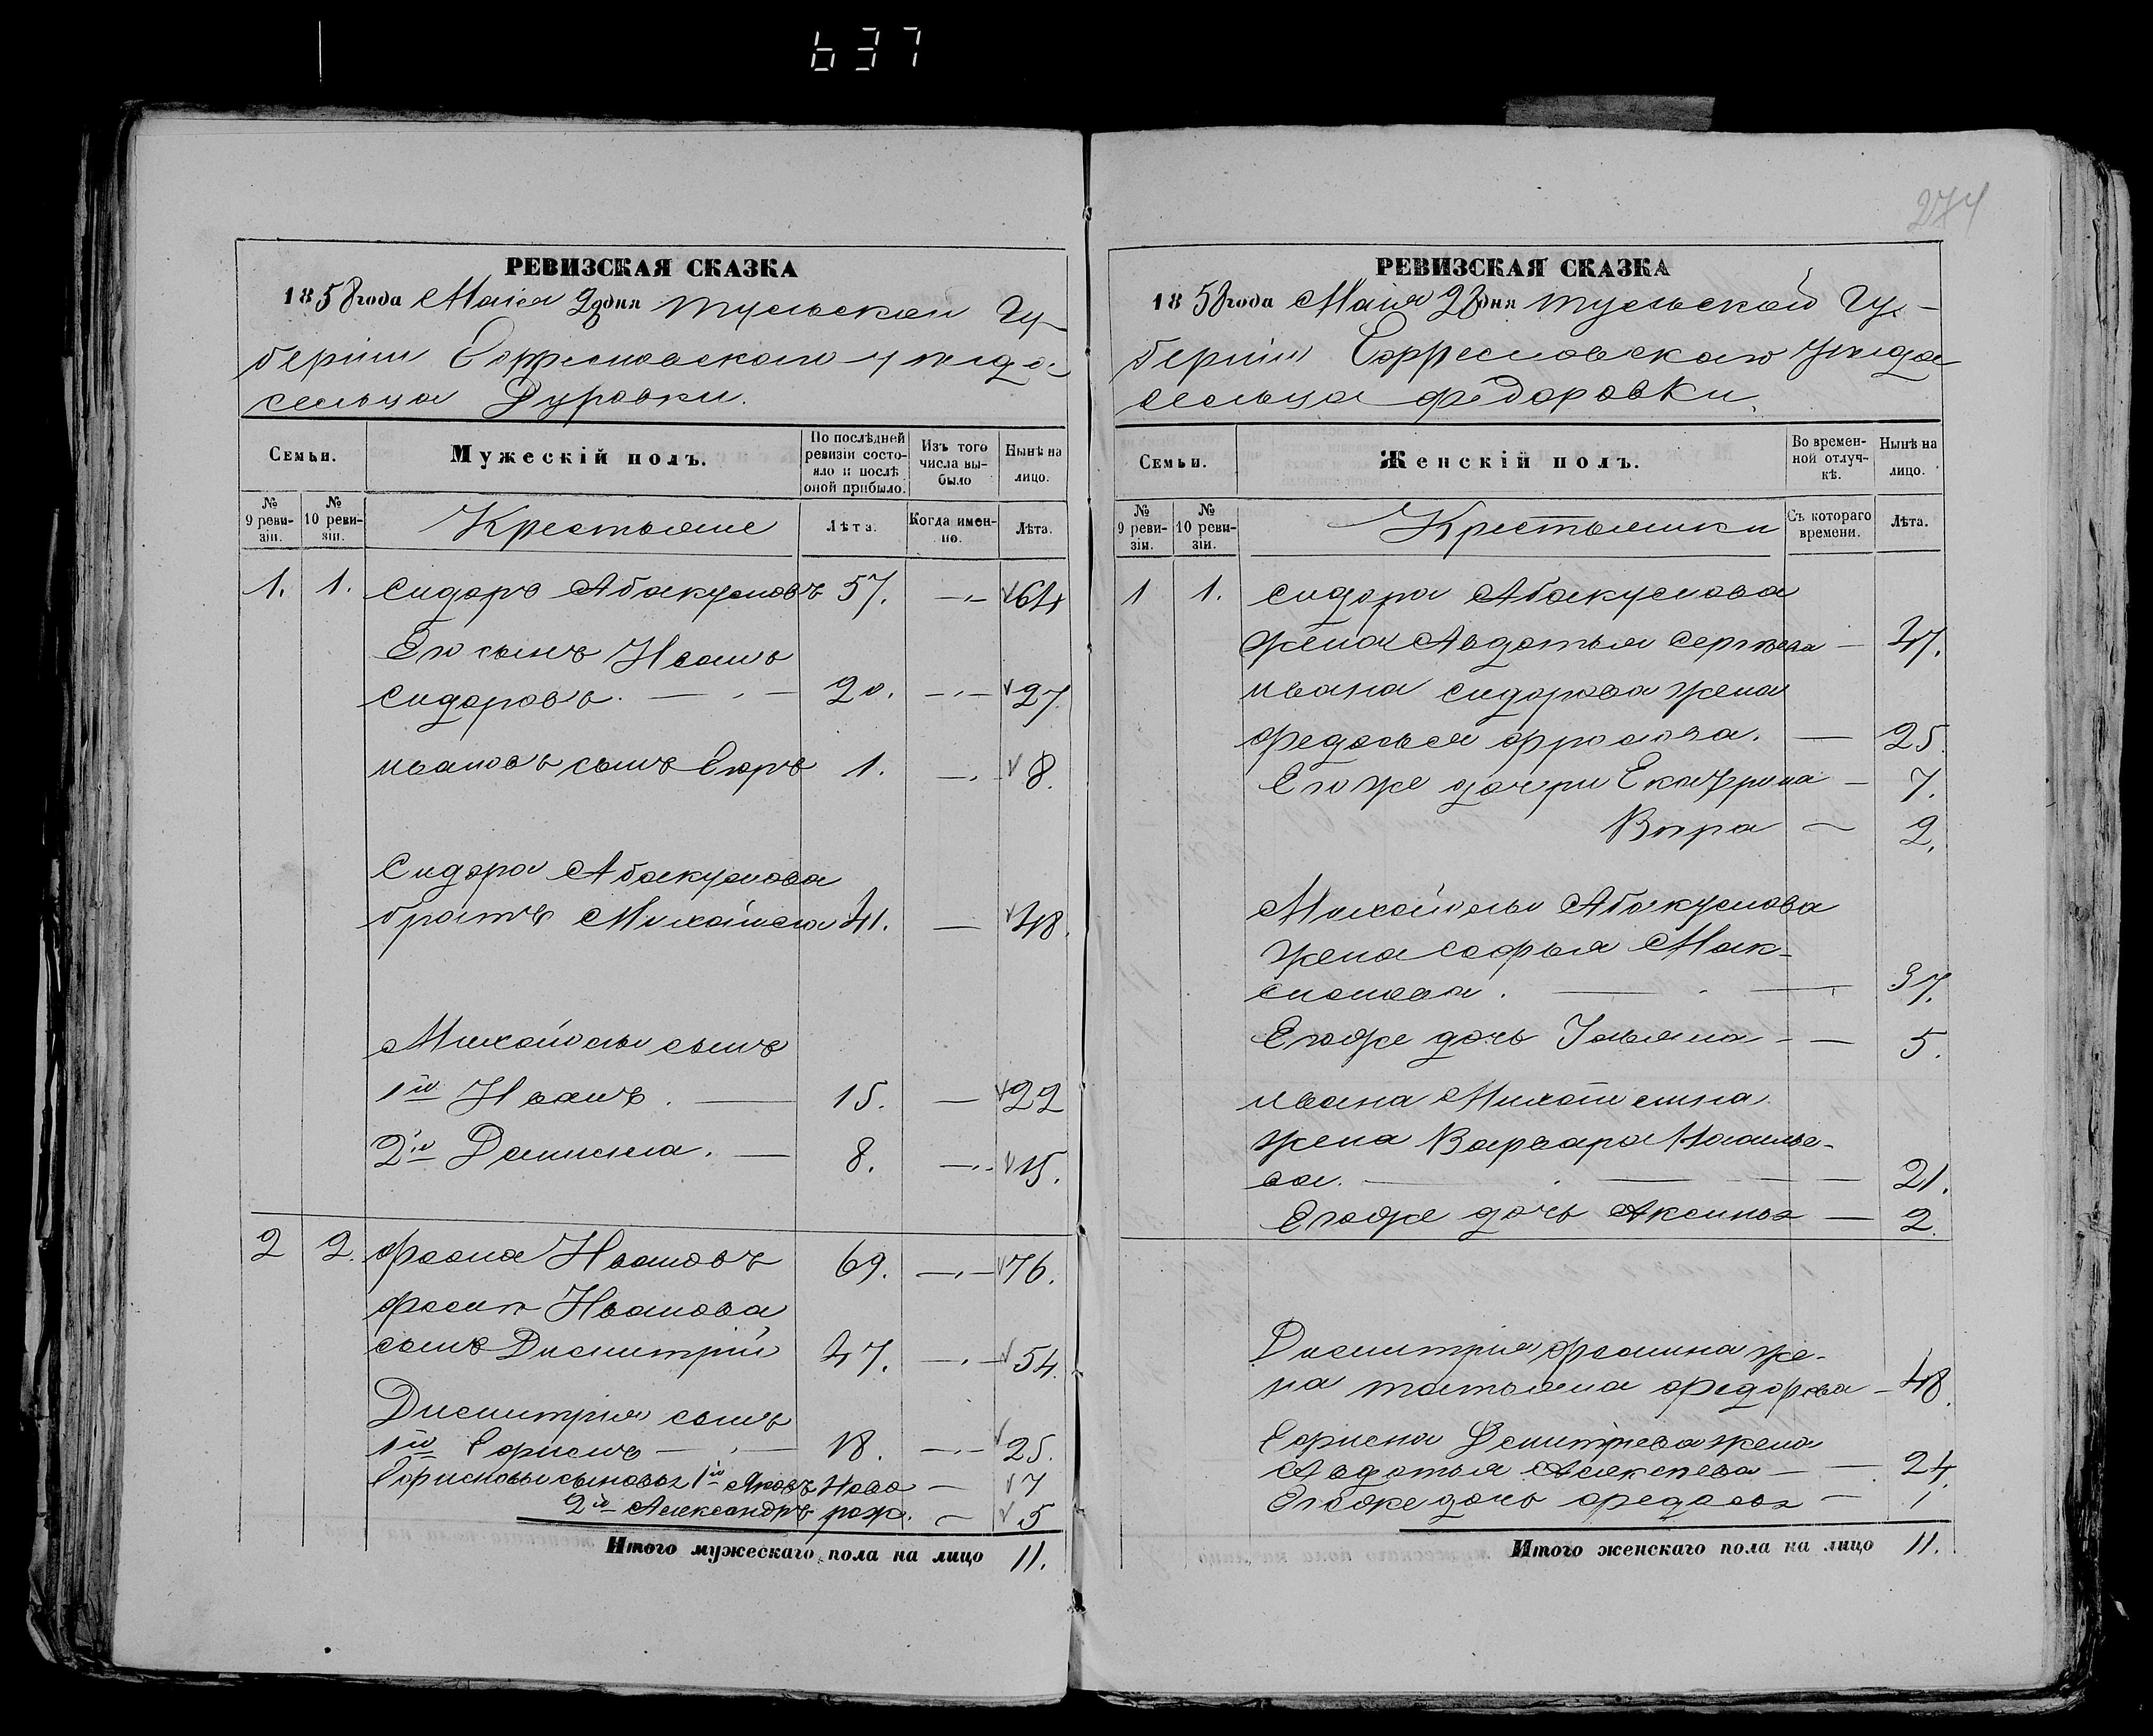 637
274
РЕВИЗСКАЯ СКАЗКА
1858 года Маія 23 дня Тульской Гу-
берніи Ефремовскаго уезда
сельца Дуровки.
Семьи.
Мужескій полъ.
По послѣдней ревизіи состояло и послѣ оной прибыло.
Изъ того числа выбыло
Нынѣ на лицо.
№ 9 ревизіи.
№ 10 ревизіи.
Крестьяне
Лѣта.
Когда именно.
Лѣта.
1. 1. Сидоръ Абакумовъ 57. — 64
Его сынъ Иванъ
Сидоровъ. — 20. — 27
Ивановъ сынъ Егоръ 1. — 8.
Сидора Абакумова
братъ Михайла 41. — 48.
Михайлы сынъ
1й Иванъ. — 15. — 22
2й Данила. — 8. — 15.
2 2. Фома Ивановъ 69. — 76.
Фомы Иванова
сынъ Дмитрій 47. — 54.
Димитрия сынъ
1й Ефимъ — 18. — 25.
Ефимовы сыновья 1й Яковъ Ново — 7
2й Александръ рож. — 5
Итого мужескаго пола на лицо 11.
РЕВИЗСКАЯ СКАЗКА
1858 года Маія 23 дня Тульской Гу-
берніи Ефремовскаго уезда
сельца Федоровки.
Семьи.
Женскій полъ.
Во временной отлучкѣ.
Нынѣ на лицо.
№ 9 ревизіи.
№ 10 ревизіи.
Крестьянки
Съ котораго времени.
Лѣта.
1 1. Сидора Абакумова
жена Авдотья Сергѣева — 47.
Ивана Сидорова жена
Федосья Фролова. — 25
Его же дочери Екатерина — 7.
Вѣра — 2.
Михайлы Абакумова
жена Софья Мак-
симова. — 37.
Егоже дочь Ульяна — 5.
Ивана Михайлина
жена Варвара
ва. — 21.
Егоже дочь Аксинья — 2.
Димитрия Фомина же-
на Татьяна Федорова — 48.
Ефима Дмитріева жена
Авдотья Алексѣева — 24.
Егоже дочь Федосья — 1
Итого женскаго пола на лицо 11.